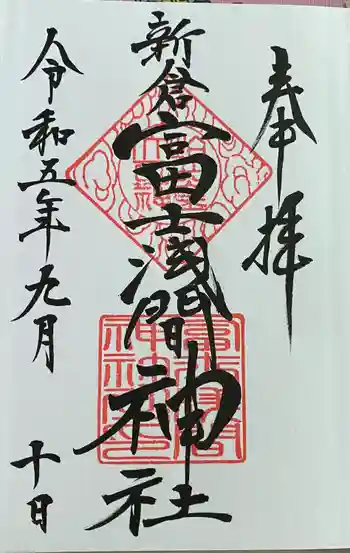 奉拝
新倉富士浅間神社
令和五年九月十日